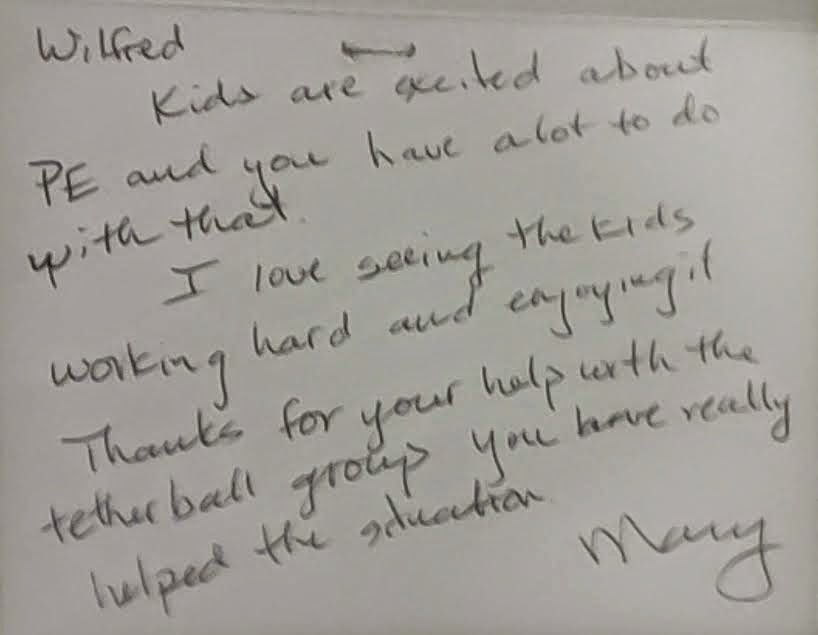 Wilfred
Kids are excited about
PE and you have alot to do
with that.
I love seeing the kids
working hard and enjoying it
Thanks for your help with the
tetherball group you have really
helped the situation
Mary